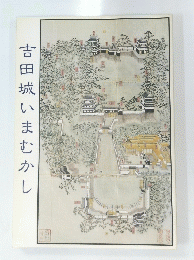 吉田城いまむかし